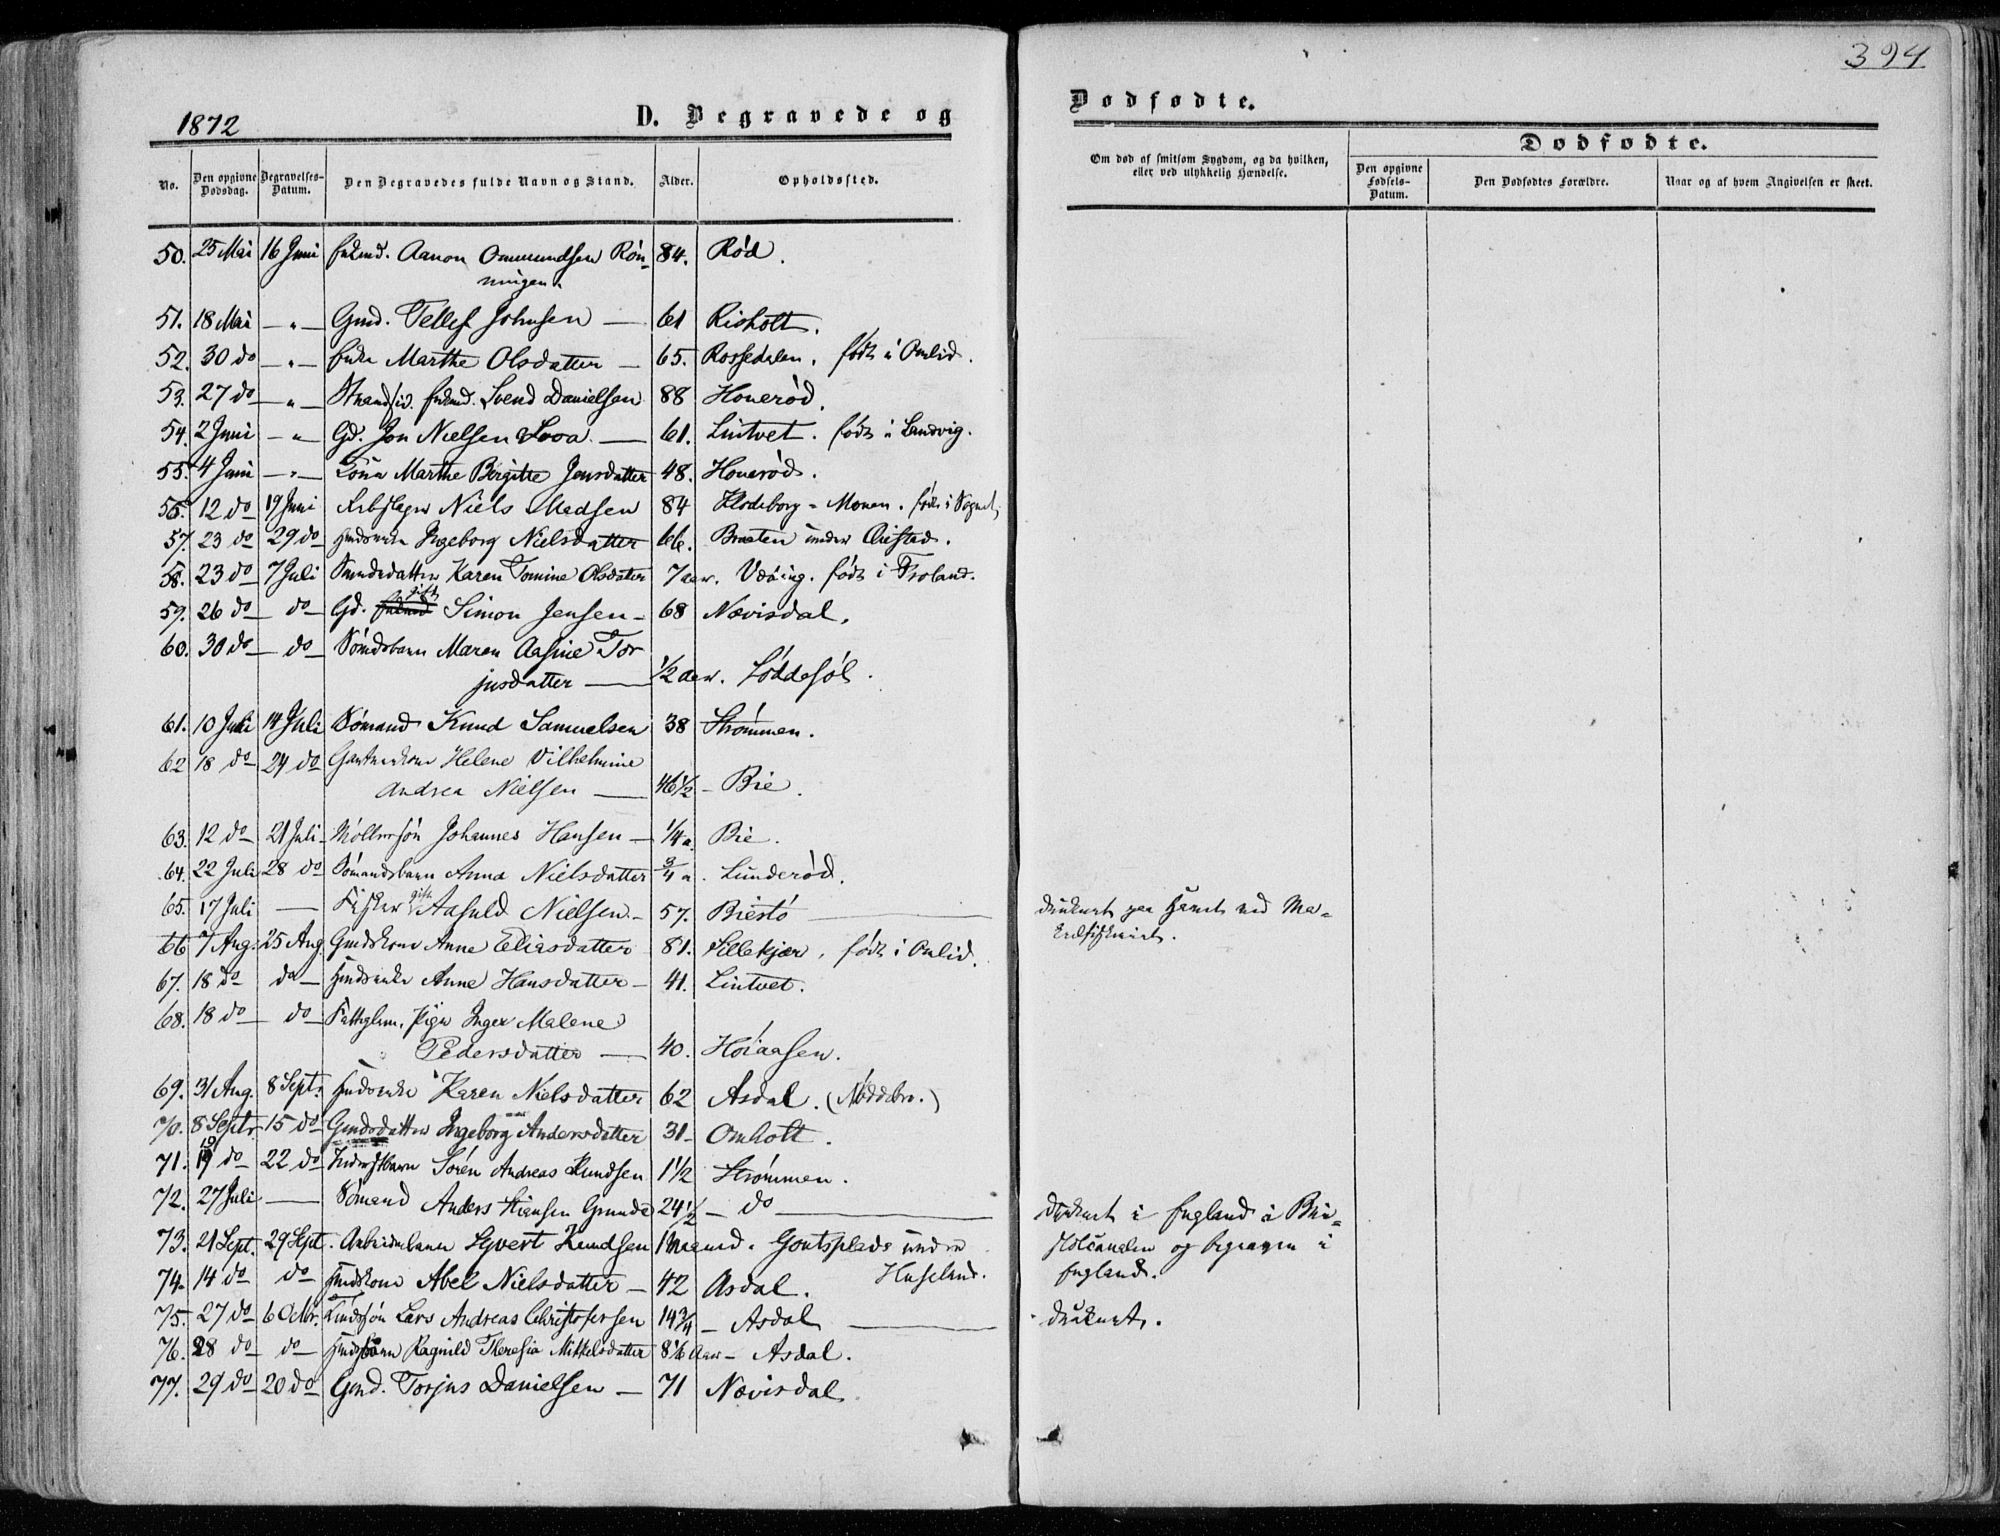 394
1872
D. Begravede og
Dødfødte.
No.
Den opgivne Dødsdag.
Begravelses-Datum.
Den Begravedes fulde Navn og Stand.
Alder.
Opholdssted.
Om død af smitsom Sygdom, og da hvilken, eller ved ulykkelig Hændelse.
Dødfødte.
Den opgivne Fødsels-Datum.
Den Dødfødtes Forældre.
Naar og af hvem Angivelsen er skeet.
50. 25 Mai 16 Juni Aanon Ommundsen Røn- 84. Rød.
ningen
51. 18 Mai — " — Gmd. Tellef Johnsen — 61 Risholt.
52. 30 do — " — Enke Marthe Olsdatter — 65. Rossedalen, født i Omlid.
53. 27 do — " — Svend Danielsen 88 Houerød.
54. 2 Juni — " Gd. Jon Nielsen — 61. Lintvet. født i Landvig.
55. 4 Juni — " — Kona Marthe Birgitte Jensdatter 48. Houerød.
56. 12 do 19 Juni Niels Madsen 84 Klodeborg - Monen. født i Sognet.
57. 23 do 29 do Ingeborg Nielsdatter 66. Braaten under
58. 23 do 7 Juli Karen Tomine Olsdatter 7 aar. født i Froland.
59. 26 do do Gd. gift Simon Jensen — 68 Nævisdal.
60. 30 do do Sømdsbarn Maren Aasine Tor
jusdatter — 1/2 aar. Løddesøl.
61. 10 Juli 14 Juli Sømand Knud Samuelsen 38 Strømmen.
62 18 do 24 do Gartnerkone Helene Vilhelmine
Andrea Nielsen — 46 1/2 - Bie.
63. 12 do 21 Juli Møllersøn Johannes Hansen — 1/4 a. Bie.
64. 22 Juli 28 do Sømandsbarn Anna Nielsdatter 3/4 a. Lunderød.
65. 17 Juli — Fisker gift Aasuld Nielsen — 57. Biestø — druknet paa Havet ved Ma-
krelfiskeriet.
66 7 Aug. 25 Aug. Gmdskone Anne Eliasdatter 81. Sillekjær, født i Omlid.
67. 18 do do Anne Hansdatter — 41. Lintvet.
68. 18 do do Fattiglem, Pige Inger Malene
Pedersdatter — 40. Høiaasen.
69. 31 Aug. 8 Septr. Karen Nielsdatter 62 Asdal. (Nøddebro.)
70. 8 Septr. 15 do Gmdsdatter Ingeborg Andersdatter 31 - Omholt.
71. 19 do 22 do Søren Andreas Knudsen 1 1/2 Strømmen.
72. 27 Juli — Sømand Anders 24 1/2 - do — druknet i England i Bri-
stolcanalen og begraven i
England.
73. 21 Sept. 29 Sept. Arbeiderbarn Syvert Knudsen 1 Maaned. under
Huseland.
74. 14 do do Husmdskone Abel Nielsdatter — 42 Asdal.
75. 27 do 6 Octbr. Lars Andreas Christofersen 14 3/4 - Asdal — druknet.
76. 28 do do Husmdsbarn Ragnild Theresia Mikkelsdatter 8 1/6 Aar - Asdal.
77. 29 do 20 do Gmd. Torjus Danielsen — 71 Nævisdal